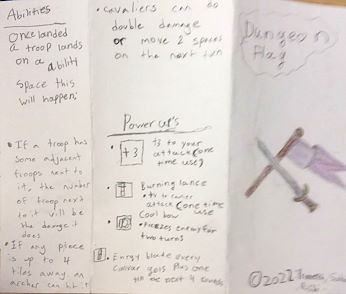 Abilities
Once landed
a troop lands
on a ability
space this
will happen:
• If a troop has
some adjacent
troops next to
it, the number
of troop next
to it will be
the damage it
does
• If any piece
is up to 4
tiles away an
archer can hit it
• cavaliers can do
double damage
or move 2 spaces
on the next turn
Power ups
+3
+3 to your
attack (one
time use)
Burning lance
attack (one time
use
Cool bow
• freezes enemy for
two turns
blade every
plus one
the next 4 rounds
Dungeon
Flag
©2022